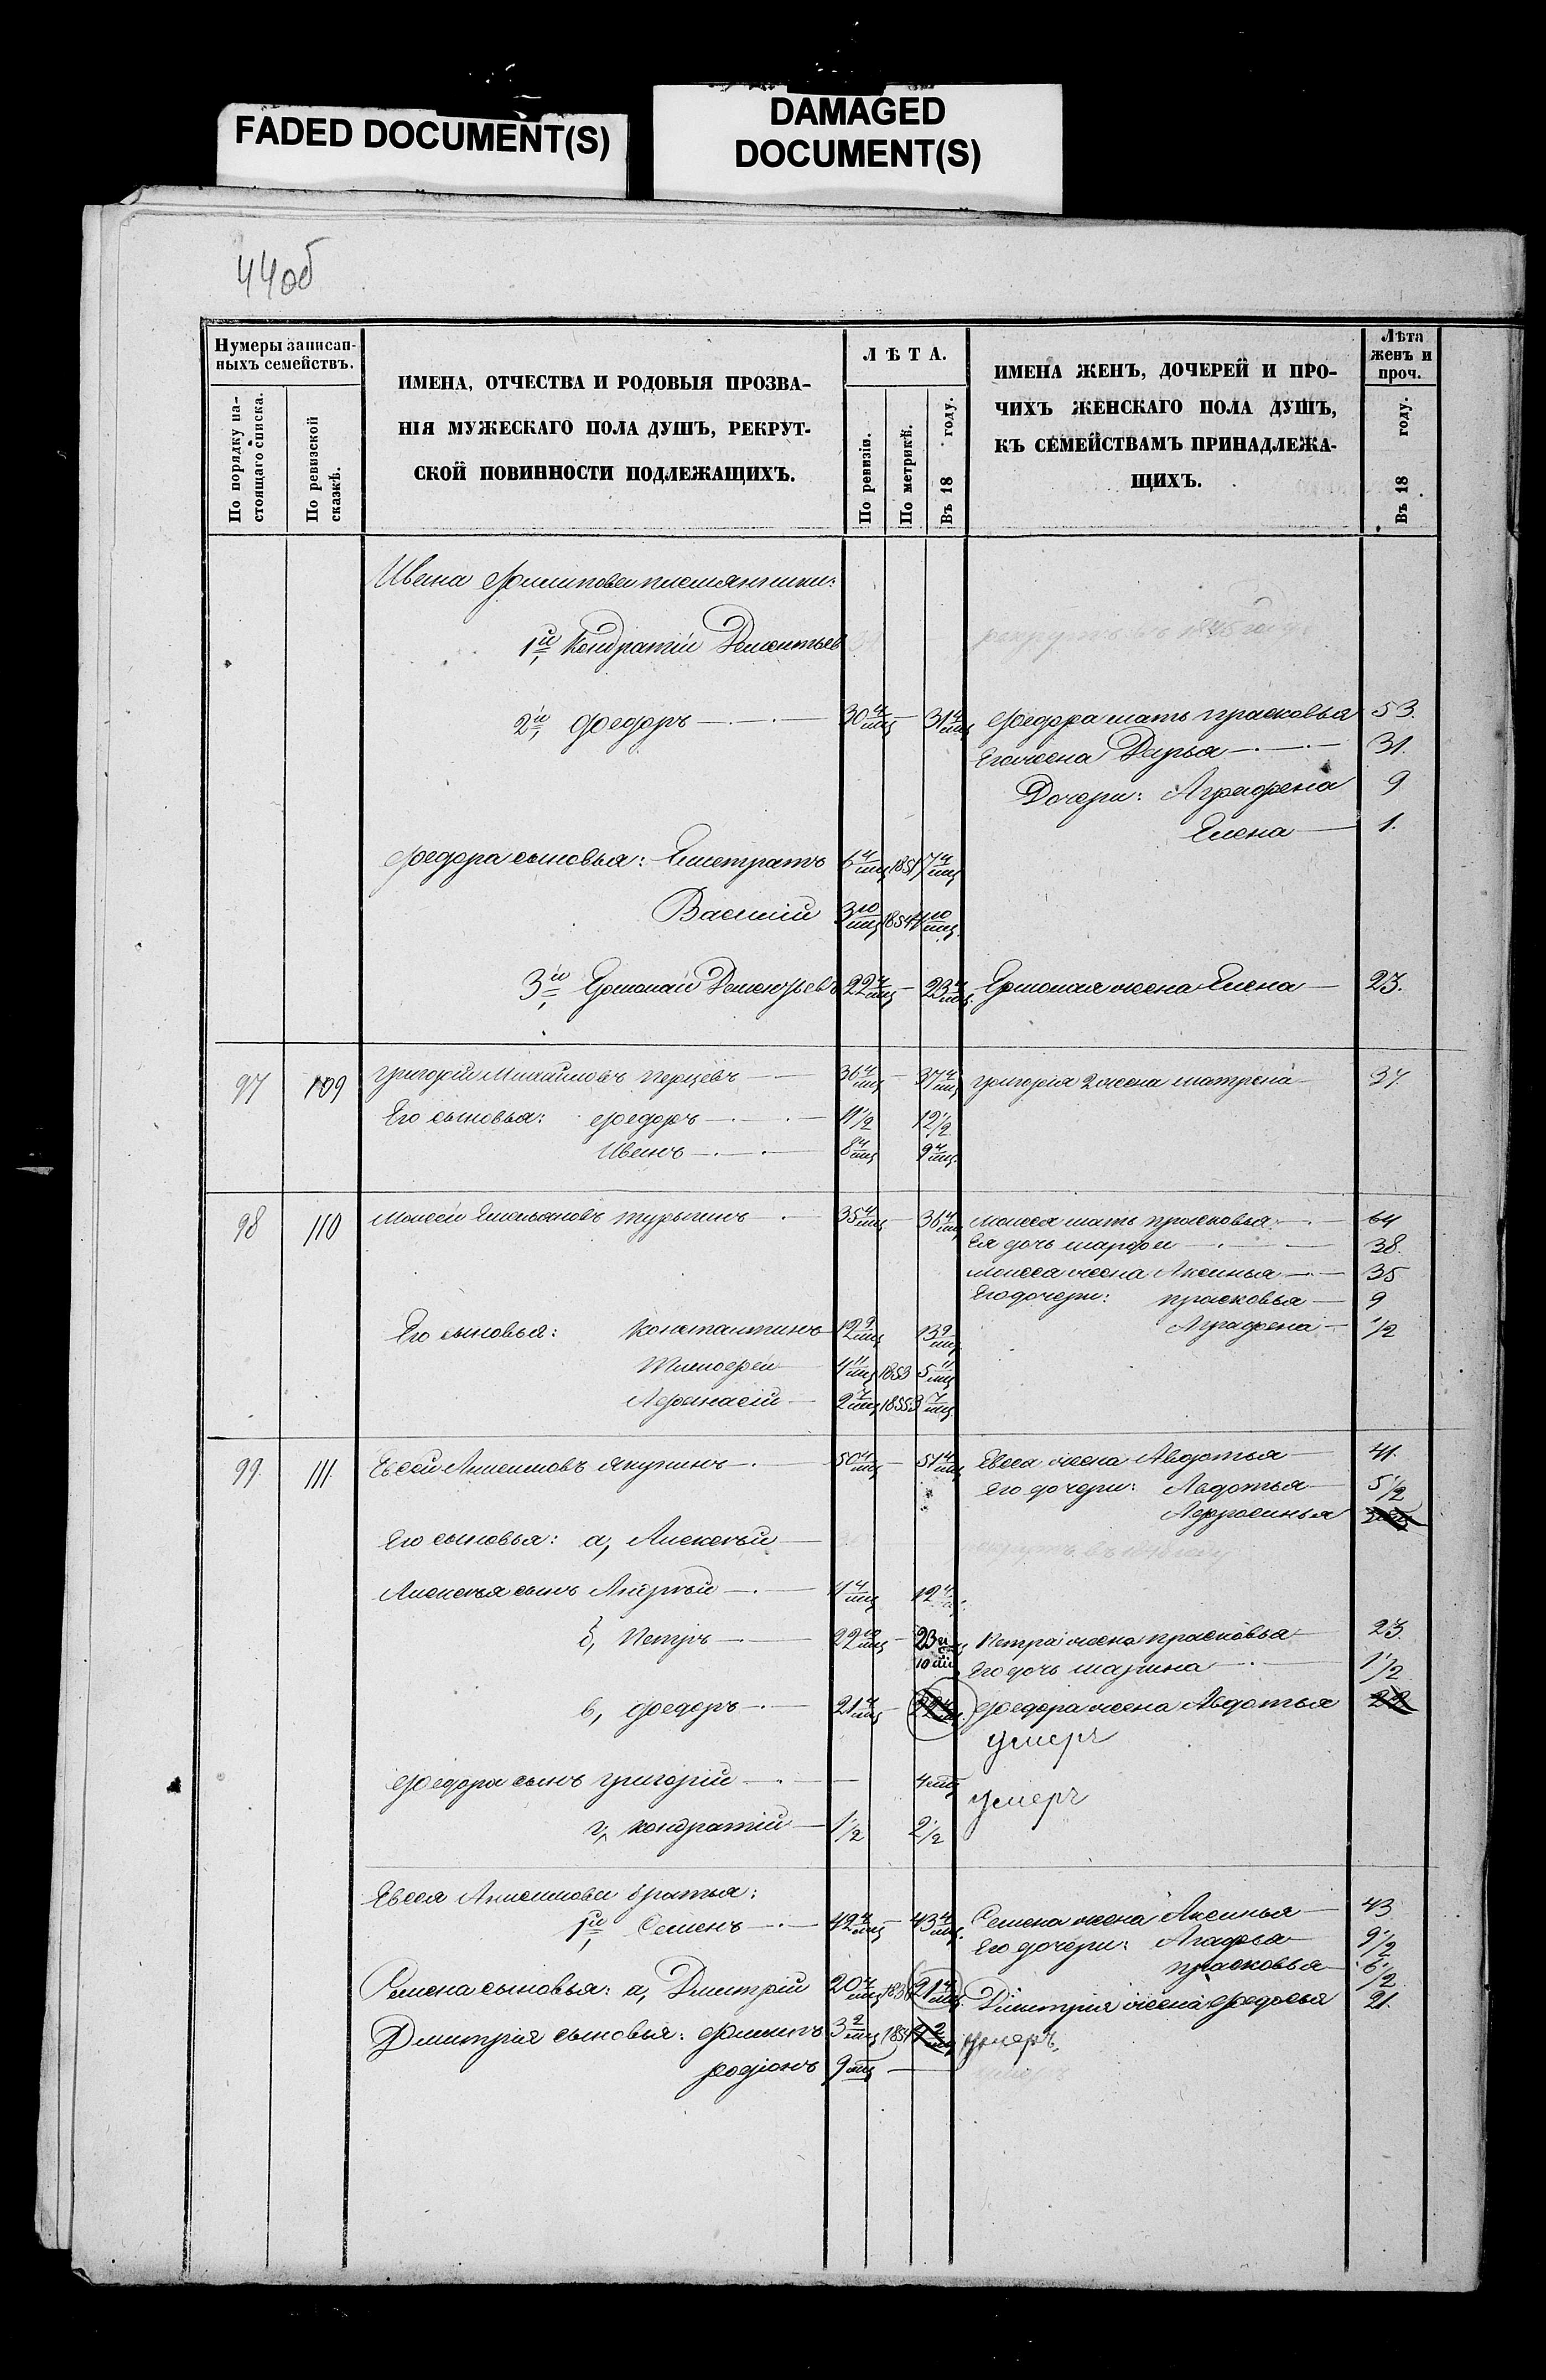 FADED DOCUMENT(S)
DAMAGED
DOCUMENT(S)
44об
Нумеры записан-
ныхъ семействъ.
По порядку на-
стоящаго списка.
По ревизской
сказкѣ.
ИМЕНА, ОТЧЕСТВА И РОДОВЫЯ ПРОЗВА-
НІЯ МУЖЕСКАГО ПОЛА ДУШЪ, РЕКРУТ-
СКОЙ ПОВИННОСТИ ПОДЛЕЖАЩИХЪ.
ЛѢТА.
По ревизіи.
По метрикѣ.
Въ 18 году.
ИМЕНА ЖЕНЪ, ДОЧЕРЕЙ И ПРО-
ЧИХЪ ЖЕНСКАГО ПОЛА ДУШЪ,
КЪ СЕМЕЙСТВАМЪ ПРИНАДЛЕЖА-
ЩИХЪ.
Лѣта
женъ и
проч.
Въ 18 году.
Ивана Филипова племянники:
1й, Кондратій Дементьев
рекрутъ въ 1845 году
2й, Федоръ — 30 4/мц — 31 4/мц Федора мать Прасковья 53.
Его жена Дарья — 31.
Дочери: Аграфена 9
Елена — 1.
Федора сыновья: Елистратъ 6 4/мц 1851 7 4/мц
Василій 3 10/мц 1854 4 10/мц.
3й, Ермолай Дементьевъ 22 4/мц — 23 4/мц. Ермолая жена Елена — 23.
97 109 Григорій Михайловъ Перцевъ — 36 4/мц — 37 4/мц Григорія 2 жена Матрена — 37.
Его сыновья: Федоръ — 11 1/2 12 1/2
Иванъ — 8 4/мц 9 4/мц.
98 110 Моисей Емельяновъ Турыгинъ — 35 4/мц — 36 4/мц Моисея мать Прасковья — 64
Ея дочь Марфа — 38.
Моисея жена Аксинья — 35
Его дочери: Прасковья — 9
Аграфена — 1/2
Его сыновья: Константинъ 12 9/мц 13 9/мц
Тимофей — 4 11/мц 1853 5 11/мц
Афанасій — 2 7/мц 1855 3 7/мц
99. 111. Евсей Анисимовъ Якунинъ — 50 4/мц — 51 4/мц Евсея жена Авдотья — 41.
Его дочери: Авдотья — 5 1/2
Афросинья
Его сыновья: а, Алексѣй —
рекрутъ въ 1848 году
Алексѣя сынъ Андрѣй — 11 4/мц 12 4/мц.
б, Петръ — 22 10/мц — 23 10 мц Петра жена Прасковья — 23.
Его дочь Марина — 1 1/2
в, Федоръ — 21 4/мц — 22 4/мц. Федора жена Авдотья 22
умеръ
Федора сынъ Григорій — 4 мц
умеръ
г, Кондратій — 1 1/2 2 1/2
Евсея Анисимова братья:
1й, Семенъ — 42 4/мц — 43 4/мц. Семена жена Аксинья — 43
Его дочери: Агафья — 9 1/2
Прасковья — 6 1/2
Семена сыновья: а, Дмитрій 20 4/мц 1836 21 4/мц. Дмитрія жена Федосья 21.
Дмитрія сыновья: Филипъ 3 2/мц 1854 4 2/мц умеръ
Родіонъ 9 мц —